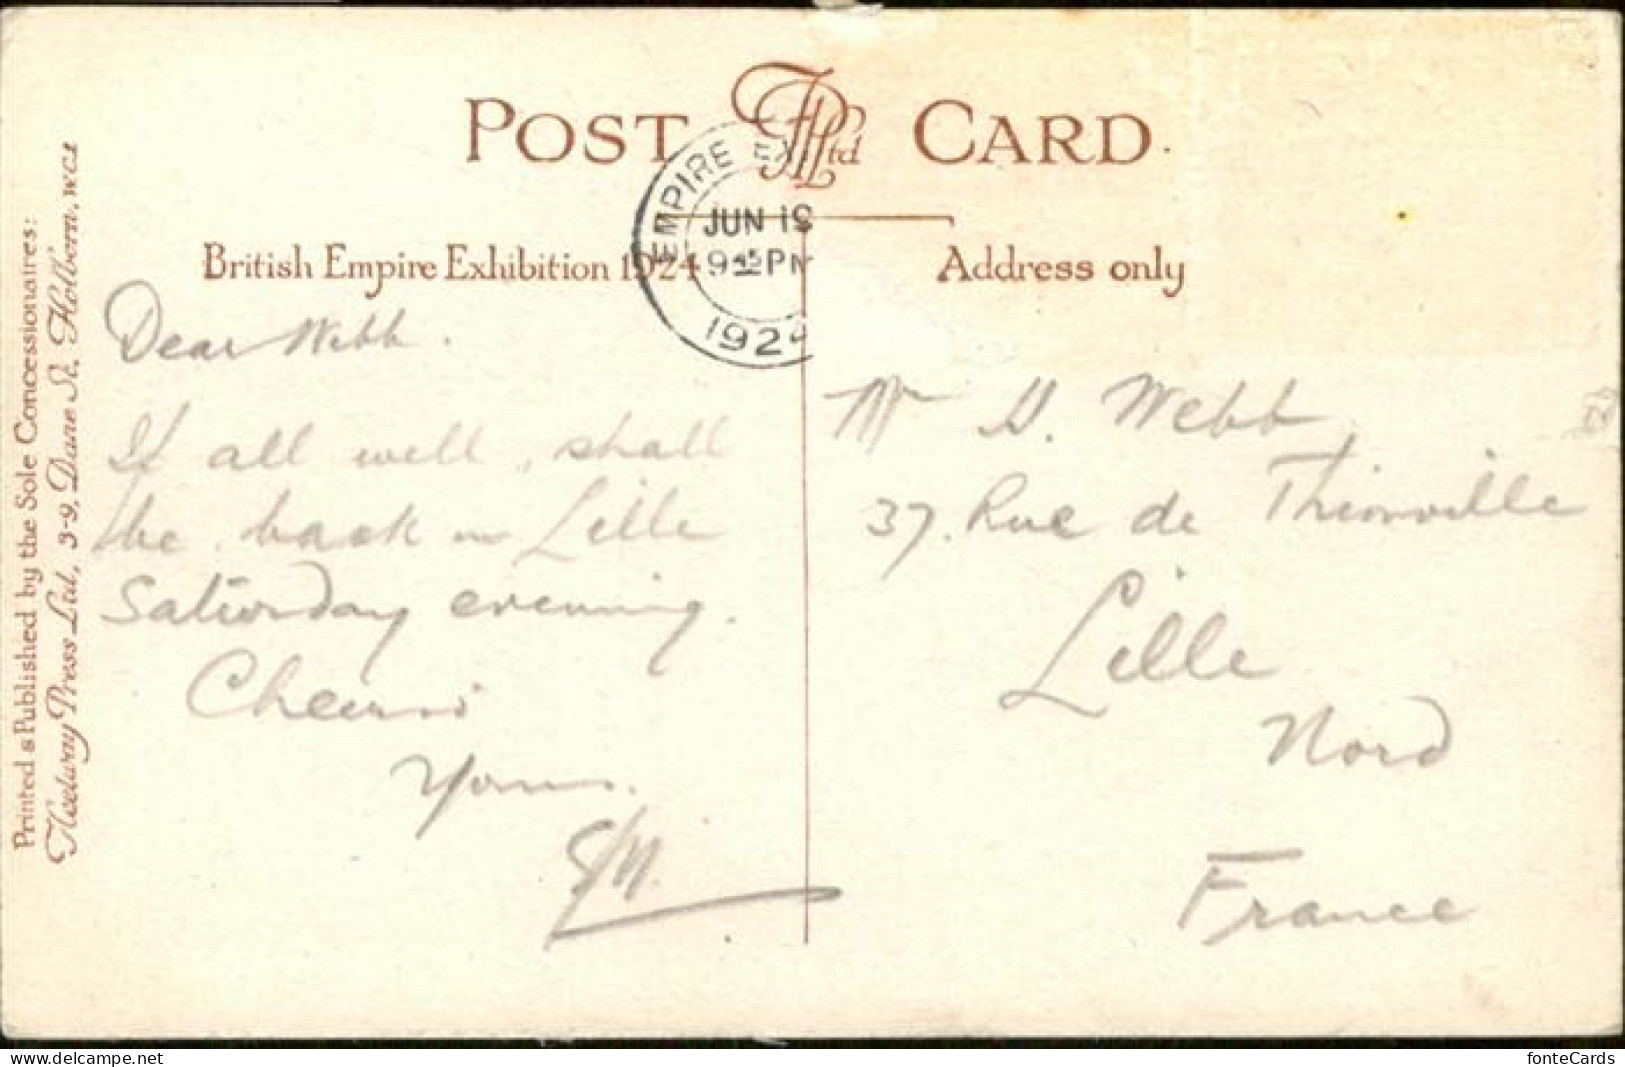 POST CARD.
EMPIRE
JUN 19
9 45 PM
1924
British Empire Exhibition 1924
Address only
Dear Webb.
If all well, shall
be back in Lille
Saturday evening.
Cheerio
Yours.
Mr H. Webb
37. Rue de Thionville
Lille
Nord
France
Printed & Published by the Sole Concessionaires:
Fleetway Press Ltd., 3-9, Dane St. Holborn, W.C.1
delcampe.net
fonteCards